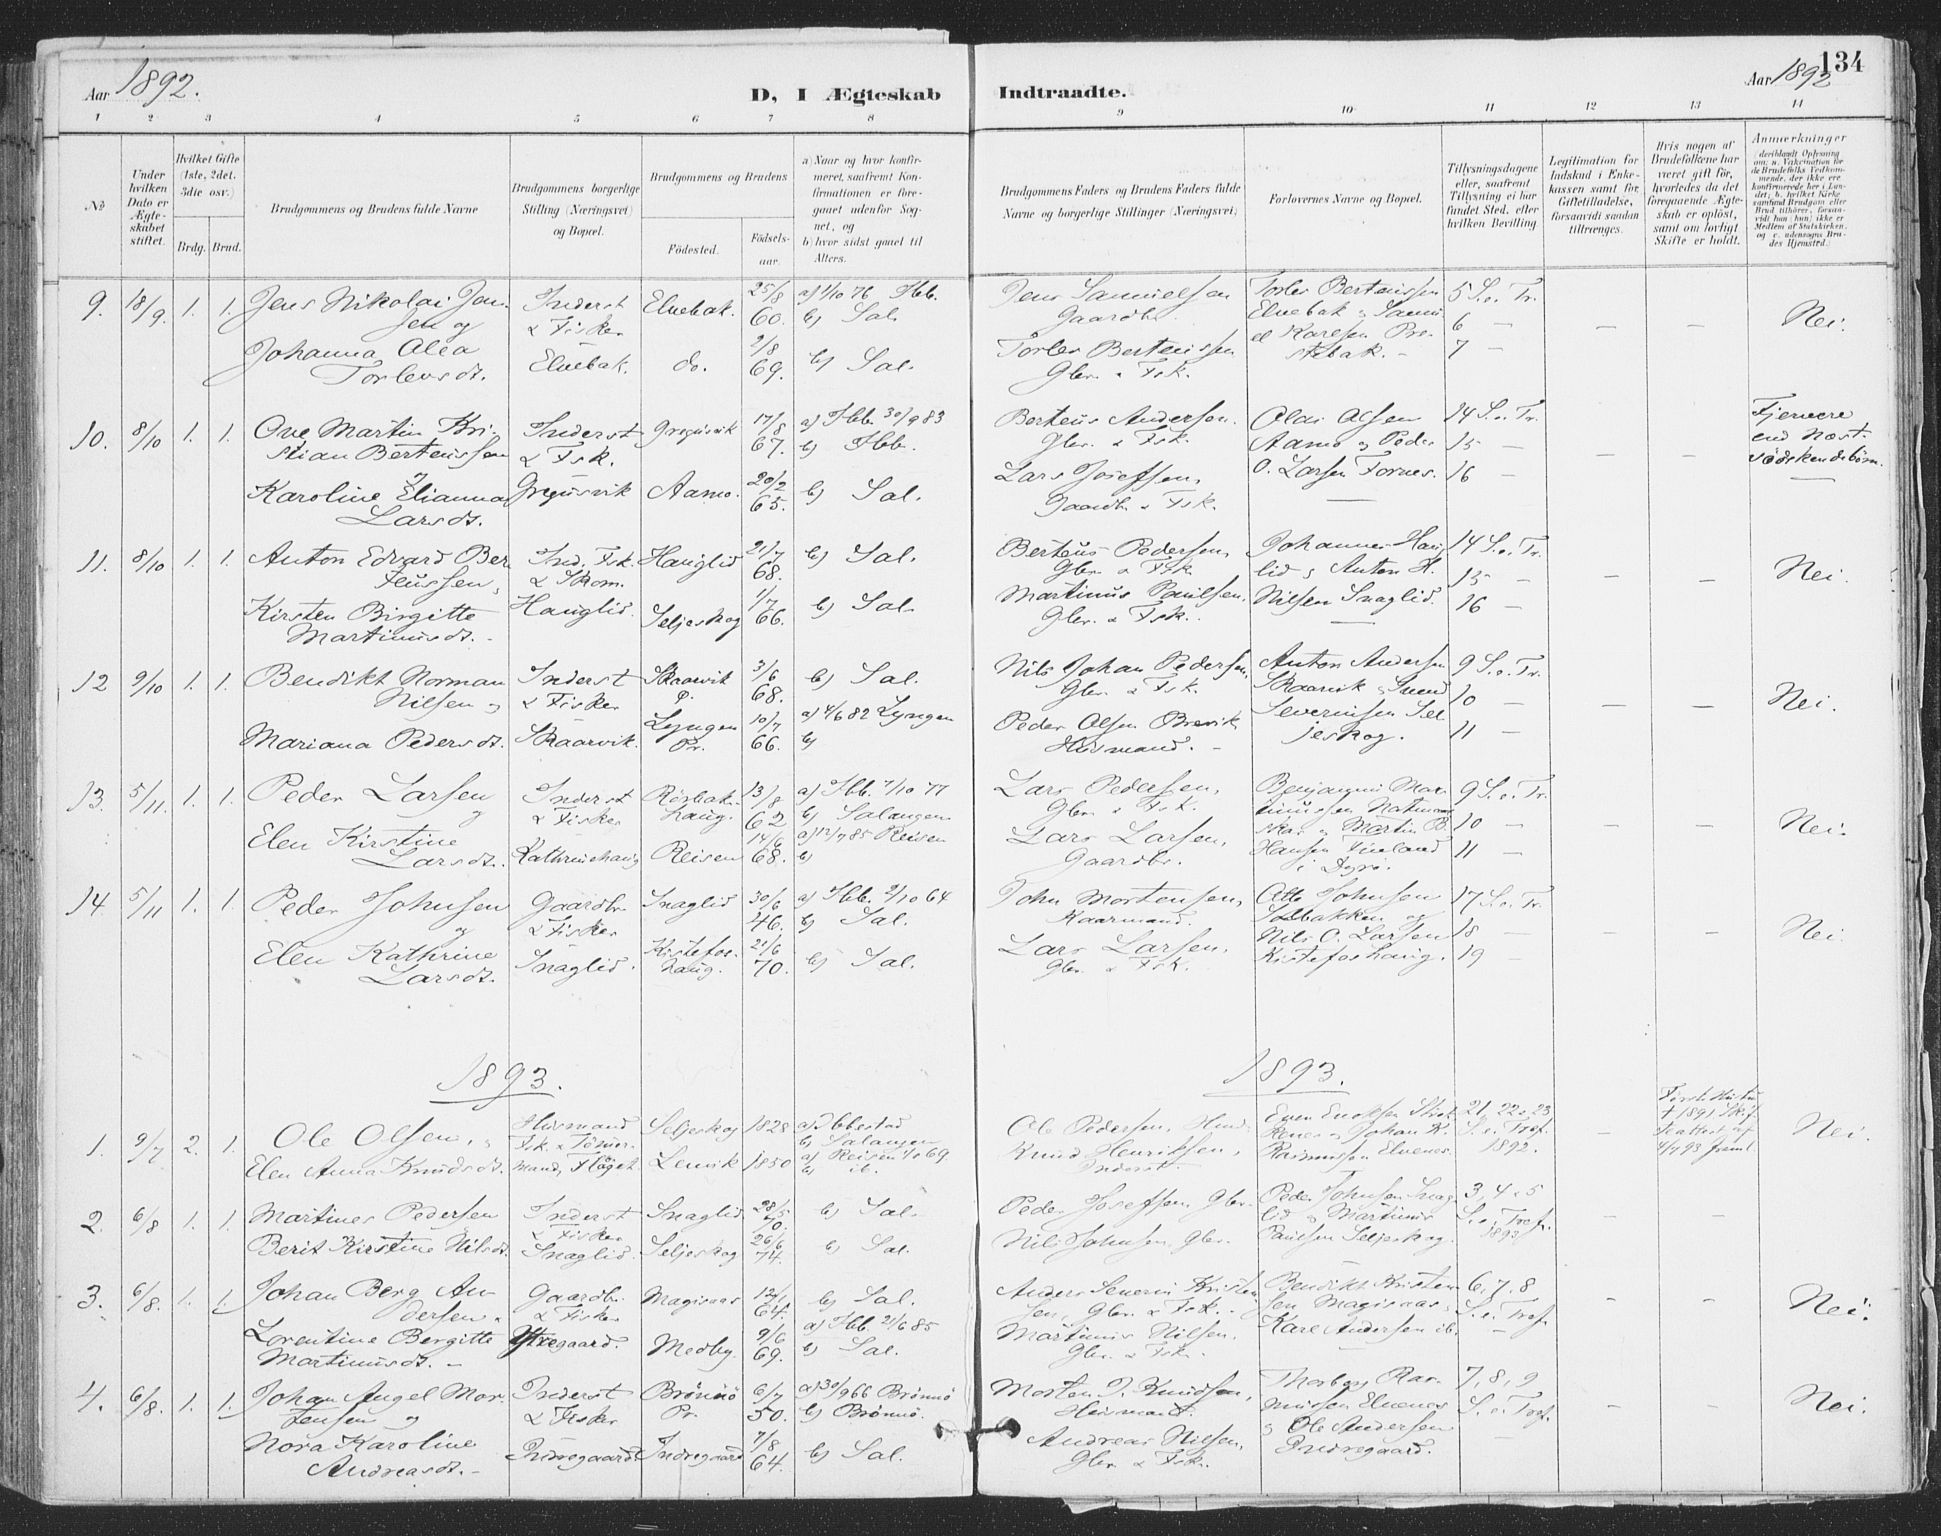 Aar 1892.
D, I Ægteskab
Indtraadte.
Aar 1892
134
1 2 3 4 5 6 7 8 9 10 11 12 13 14
№
Under hvilken Dato er Ægteskabet stiftet.
Hvilket Gifte (1ste, 2det, 3die osv.)
Brdg. Brud.
Brudgommens og Brudens fulde Navne
Brudgommens borgerlige Stilling (Næringsvei) og Bopæl.
Brudgommens og Brudens
Födested.
Födselsaar.
a) Naar og hvor konfirmeret, saafremt Konfirmationen er foregaaet udenfor Sognet, og
b) hvor sidst gaaet til Alters.
Brudgommens Faders og Brudens Faders fulde Navne og borgerlige Stillinger (Næringsvei)
Forlovernes Navne og Bopæl.
Tillysningsdagene eller, saafremt Tillysning ei har fundet Sted, efter hvilken Bevilling
Legitimation for Indskud i Enkekassen samt for Giftetilladelse, forsaavidt saadan tiltrænges.
Hvis nogen af Brudefolkene har været gift før, hvorledes da det foregaaende Ægteskab er oplöst, samt om lovligt Skifte er holdt.
Anmerkninger
9. 18/9. 1. 1. Jens Nikolai Jensen og Inderst & Fisker Elvebak. 25/8 60. a) 1/10 76 Ibb. b) Sal. Jens Samuelsen Gaardbr. Torlev Berteussen Elvebak & Samuel Karlsen Prestbak. 5 S. e. Tr. 6 — 7 — — — Nei.
Johanna Alea Torlevsdt. Elvebak. do. 2/8 69. b) Sal. Torlev Berteussen Gbr. & Fsk.
10. 8/10 1. 1. Ove Martin Kristian Berteussen & Inderst & Fsk. Gregusvik 17/8 67. a) Ibb. 30/9 83 b) Ibb. Berteus Andersen. Gbr. & Fsk. Olai Olsen Aamo & Peder O. Larsen Fornes. 14 S. e. Tr. 15 — 16 — — — Fjernere end Næstsödskendebörn.
Karoline Elianna Larsdt. Gregusvik Aamo. 20/2 65. b) Sal. Lars Josefsen, Gaardb. & Fsk.
11. 8/10 1. 1. Anton Edvard Berteussen, Ind. Fsk. & Skom. Hauglid 21/7 68. b) Sal. Berteus Pedersen, Gbr. & Fsk. Johannes Hauglid & Anton H. Nilsen Snaglid. 14 S. e. Tr. 15 — 16 — — — Nei.
Kirsten Birgitte Martinusdt. Hauglid. Seljeskog 1/7 66. b) Sal. Martinus Paulsen. Gbr. & Fsk.
12 9/10 1. 1. Bendikt Norman Nilsen & Inderst & Fisker Skaarvik 3/6 68. b) Sal. Nils Johan Pedersen, Gbr. & Fsk. Anton Andersen Skaarvik & Severinsen Seljeskog. 9 S. e. Tr. 10 — 11 — — — Nei.
Mariana Pedersdt. Skaarvik. Lyngen Pr. 10/7 66. a) 4/6 82 Lyngen b) Peder Olsen Brevik Husmand.
13. 5/11. 1. 1. Peder Larsen og Inderst & Fisker Rösbakhaug. 13/8 62 a) Ibb. 7/10 77 b) Salangen Lars Pedersen, Gbr. & Fsk. Benjamin Martinussen & Martin B. Hansen Fineland i Dyrö. 9 S. e. Tr. 10 — 11 — — — Nei.
Elen Kirstine Larsdt. Kathrinehaug Reisen 14/6 68. a) 12/7 85 Reisen b) Lars Larsen, Gaardbr.
14 5/11 1. 1. Peder Johnsen og Gaardbr. & Fisker Snaglid 30/6 46. a) Ibb. 2/10 64 b) Sal. John Mortensen, Kaarmand. Otto Johnsen Solbakken og Nils O. Larsen Kistefoshaug. 17 S. e. Tr. 18 — 19 — — — Nei.
Elen Kathrine Larsdt. Snaglid. Kistefoshaug. 21/6 70. b) Sal. Lars Larsen, Gbr. & Fsk.
1893.
1893.
1. 9/7 2. 1. Ole Olsen, & Husmand Fsk. & Tömmermand, Flöget Seljeskog 1828 a) Ibbestad b) Salangen Ole Pedersen, Husmd. Even Enoksen & Johan K. Rasmussen Elvenes. 21, 22 & 23 S. e. Tref. 1892. — Förste Hustru † 1891 4/7 93 Nei.
Elen Anna Knudsdt. Lenvik 1850 a) Reisen 69. b) ib. Knud Henriksen, Inderst.
2. 6/8 1. 1. Martines Pedersen Inderst & Fisker Snaglid. 28/5 70. b) Sal. Peder Josefsen, Gbr. Peder Johnsen Snaglid & Martinus Paulsen Seljeskog. 3, 4 & 5 S. e. Tref. 1893 — —
Berit Kirstine Nilsdt. Snaglid. Seljeskog 26/6 74. b) Sal. Nils Johnsen, Gbr.
3. 6/8. 1. 1. Johan Berg Andersen & Gaardbr. & Fisker Magisaas 12/1 64. b) Sal. Anders Severin Kristensen, Gbr. & Fsk. Bendikt Kristensen Magisaas, Karl Andersen ib. 6, 7, 8 S. e. Tref. — — — Nei.
Lorentine Bergitte Martinusdt. Ytregaard. Medby. 9/6 69. a) Ibb 21/6 85 b) Sal. Martinus Nilsen, Gbr. & Fsk.
4. 6/8. 1. 1. Johan Angel Mortensen og Inderst & Fisker Brönnö Pr. 6/7 50. a) 30/9 66 Brönnö b) Brönnö. Morten J. Knudsen, Husmand. Thorberg Rasmussen Elvenes & Ole Andersen Indregaard. 7, 8, 9 S. e. Tref. — — — Nei.
Nora Karoline Andreasdt. Indregaard Indregaard 7/8 64. b) Sal. Andreas Nilsen, Gbr. & Fsk.